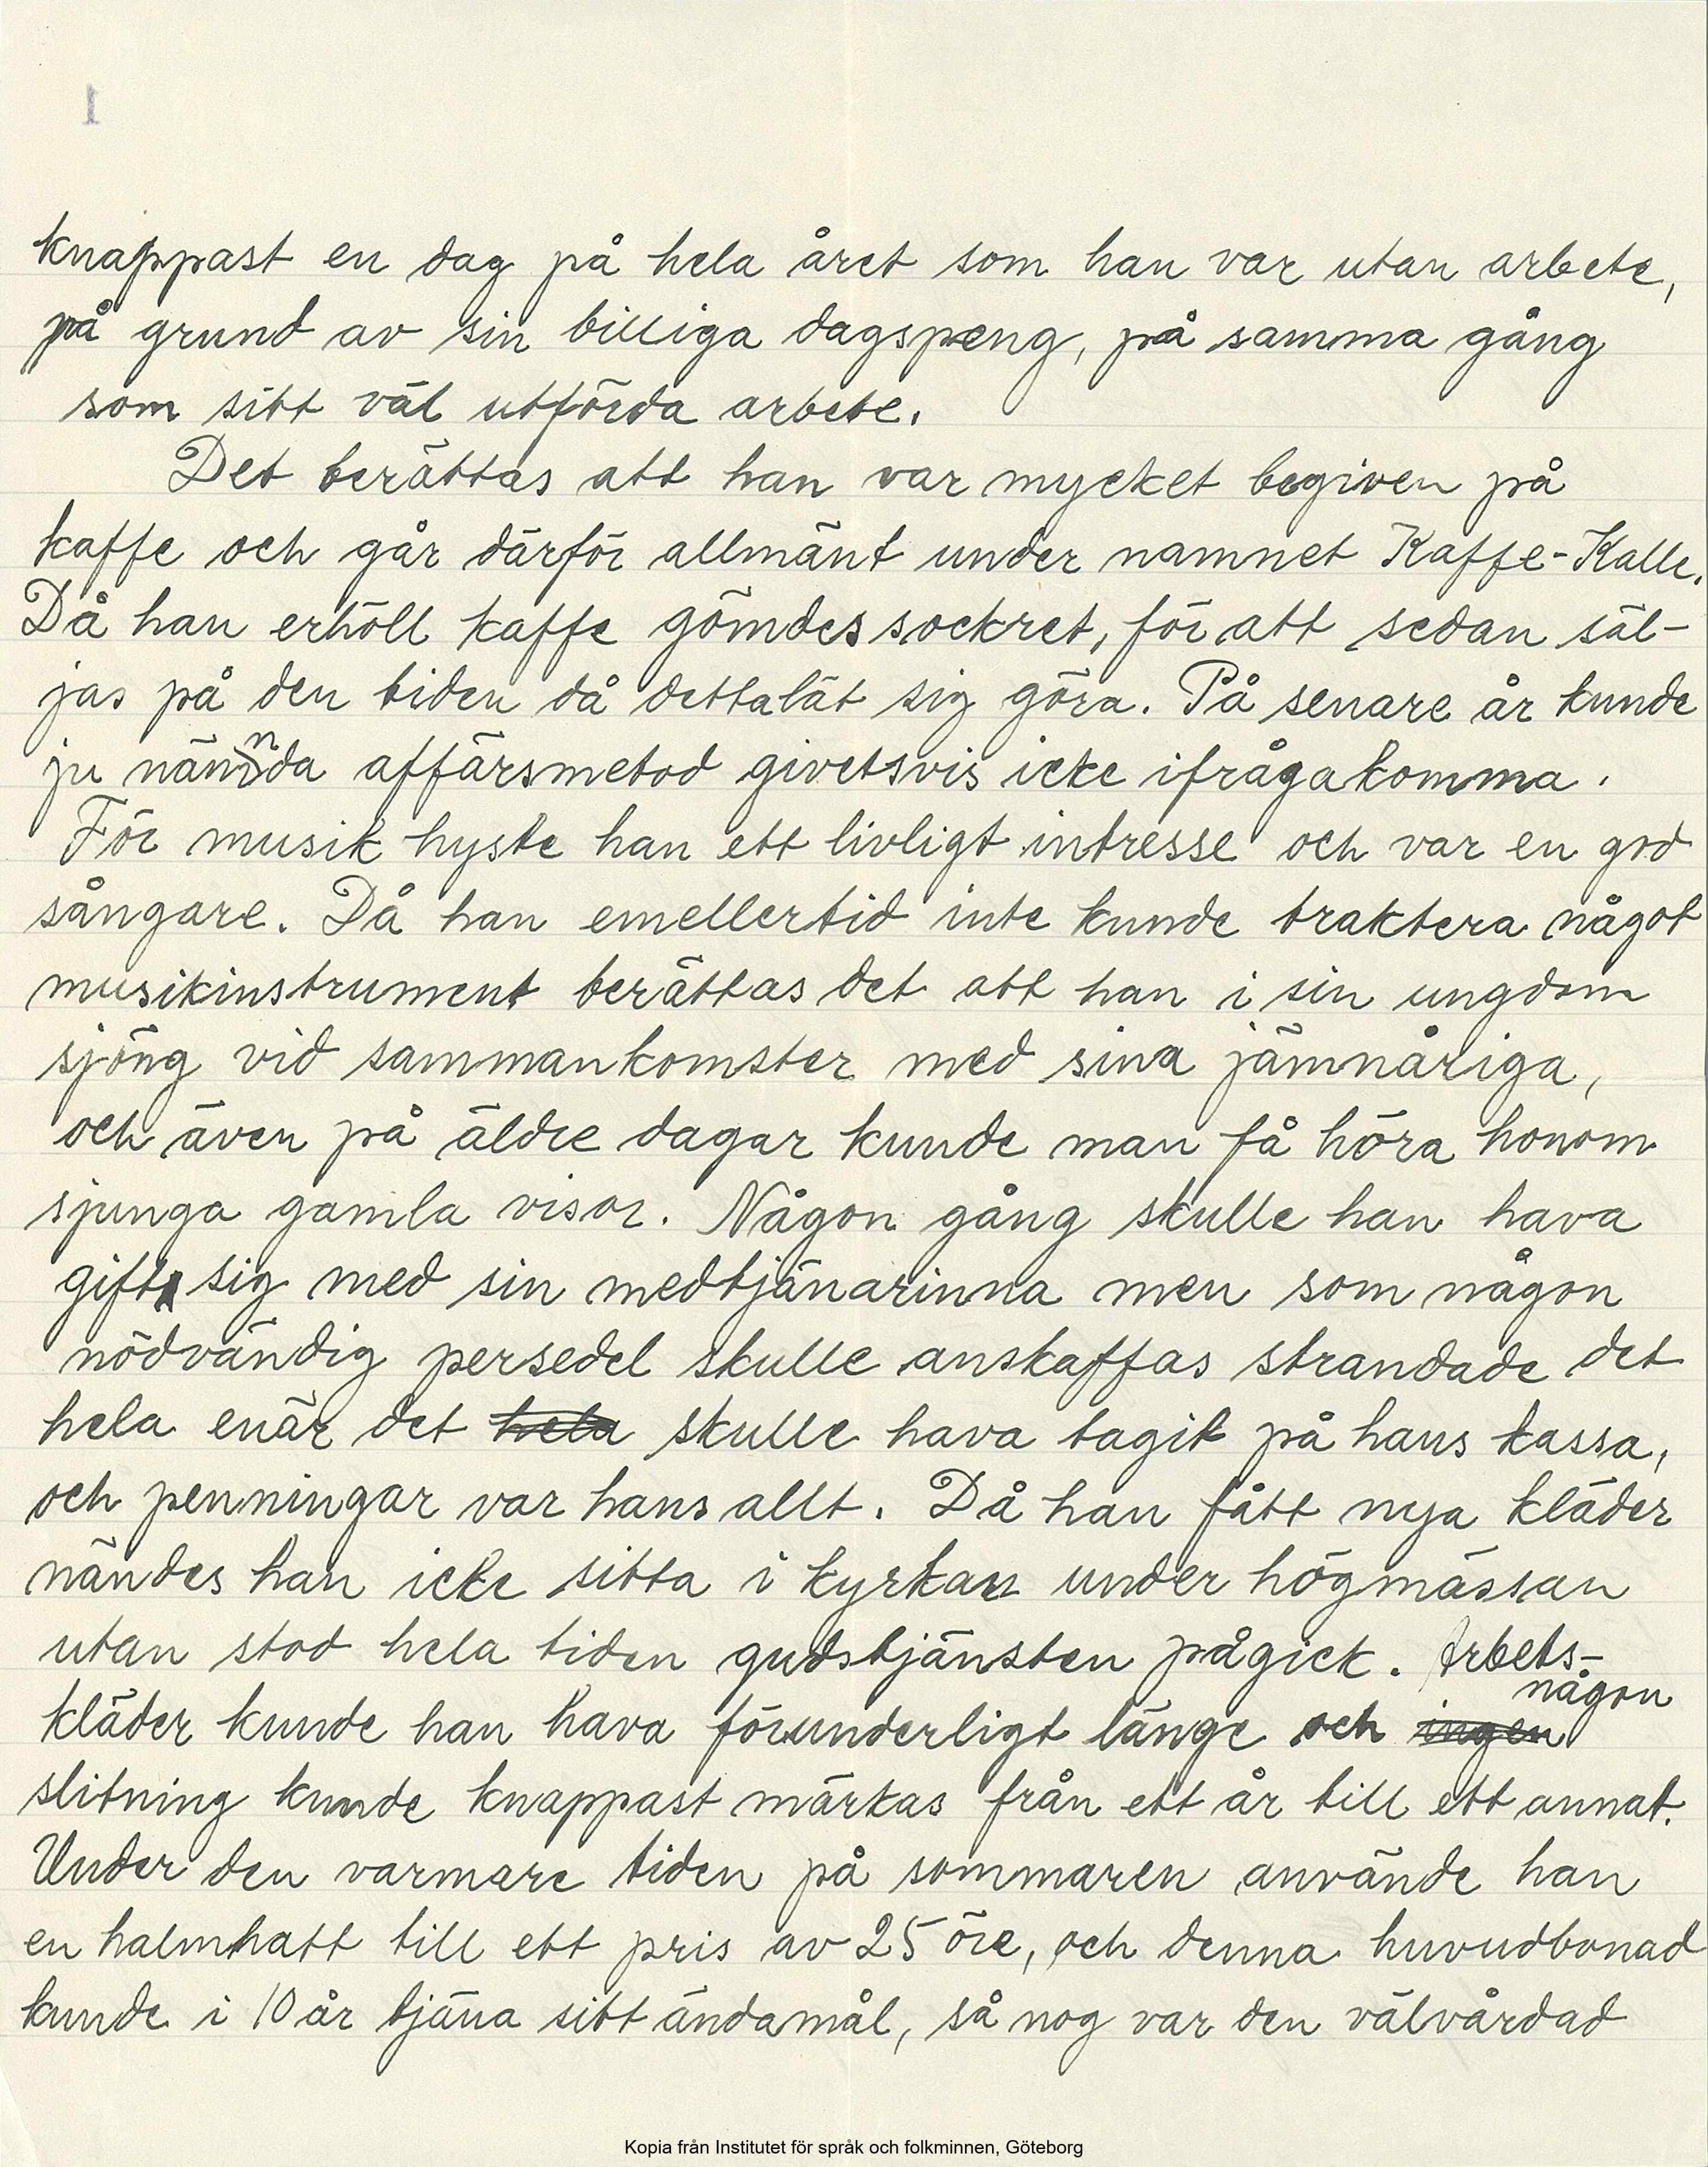 1
knappast en dag på hela året som han var utan arbete,
på grund av sin billiga dagspeng, på samma gång
som sitt väl utförda arbete.
Det berättas att han var mycket begiven på
kaffe och går därför allmänt under namnet Kaffe-Kalle.
Då han erhöll kaffe gömdes sockret, för att sedan säl-
jas på den tiden då detta lät sig göra. På senare år kunde
ju nämnda affärsmetod givetsvis icke ifrågakomma.
För musik hyste han ett livligt intresse och var en god
sångare. Då han emellertid inte kunde traktera något
musikinstrument berättas det att han i sin ungdom
sjöng vid sammankomster med sina jämnåriga,
och även på äldre dagar kunde man få höra honom
sjunga gamla visor. Någon gång skulle han hava
gift sig med sin medtjänarinna men som någon
nödvändig persedel skulle anskaffas strandade det
hela enär det hela skulle hava tagit på hans kassa,
och penningar var hans allt. Då han fått nya kläder
nändes han icke sitta i kyrkan under högmässan
utan stod hela tiden gudstjänsten pågick. Arbets-
någon
kläder kunde han hava förunderligt länge och ingen
slitning kunde knappast märkas från ett år till ett annat.
Under den varmare tiden på sommaren använde han
en halmhatt till ett pris av 25 öre, och denna huvudbonad
kunde i 10 år tjäna sitt ändamål, så nog var den välvårdad
Kopia från Institutet för språk och folkminnen, Göteborg